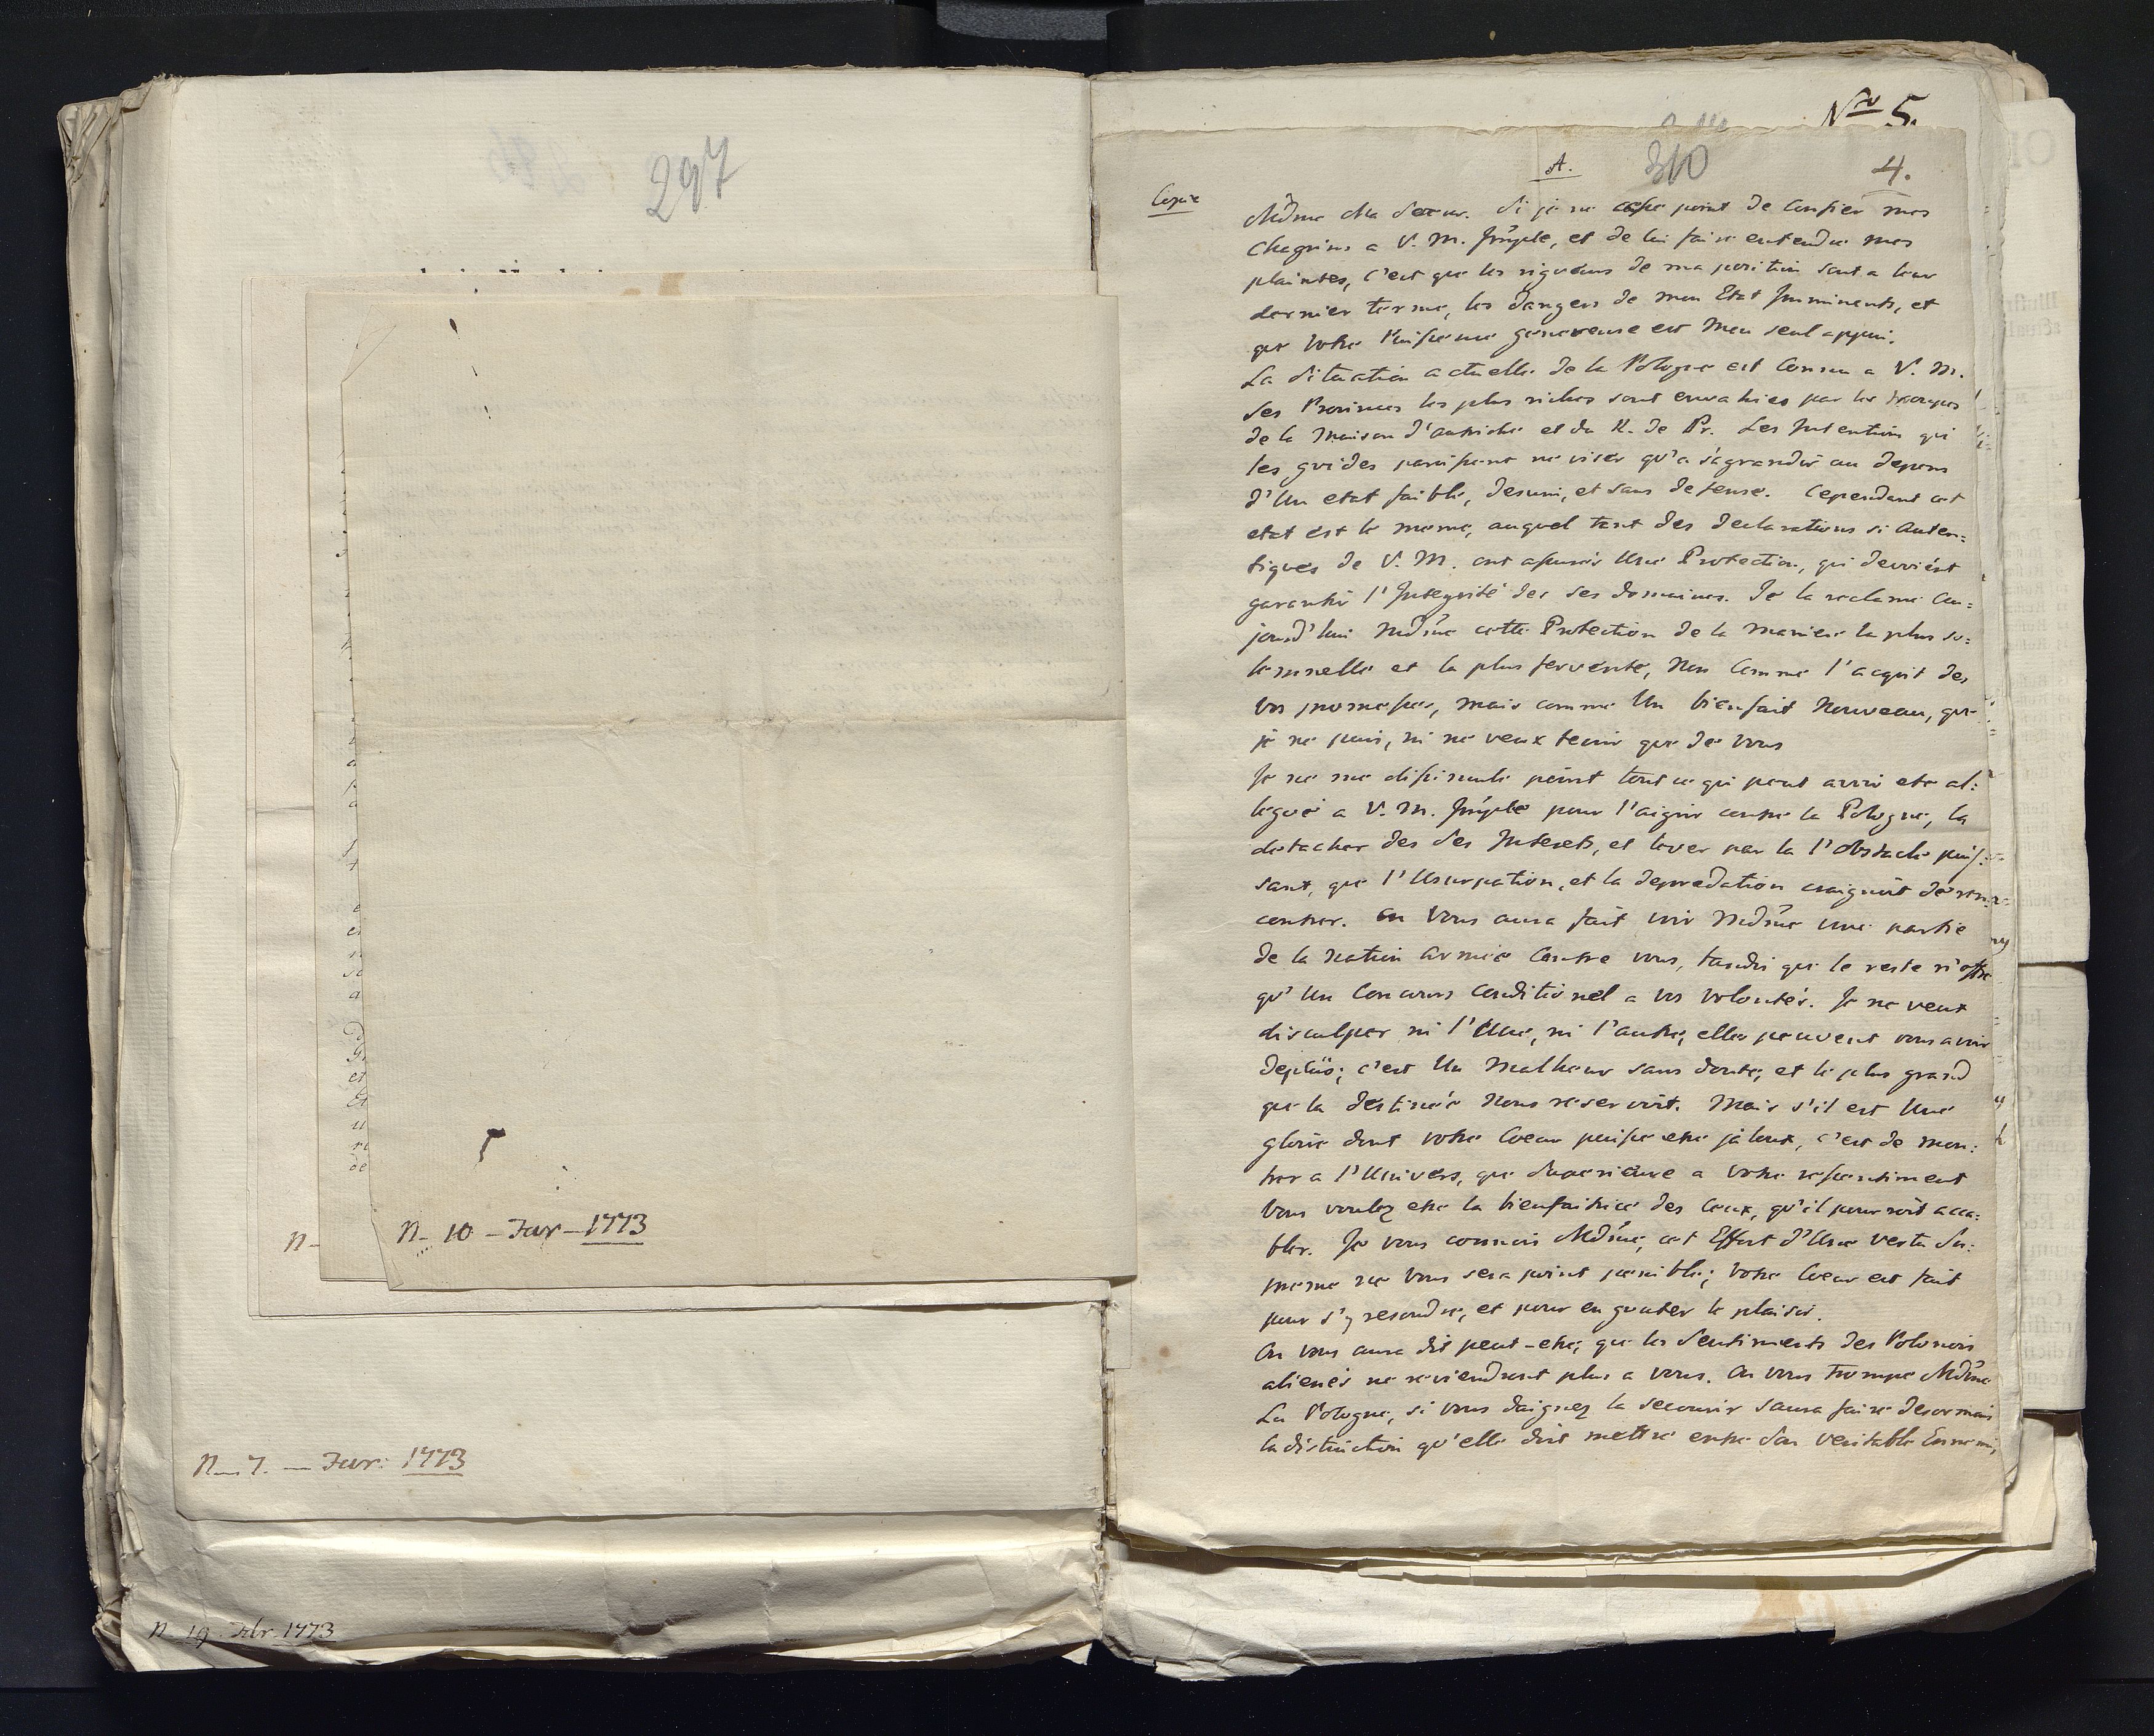 297
N- 10 - Jar - 1773
N-
N-7. - Jar: 1773
N 19 Febr. 1773
Nro 5.
A.
310
4.
Copie
Mdme Ma Soeur. Si je ne cesse point de confier mes
chagrins a V. M. Imple, et de lui faire entendre mes
plaintes, c'est que les rigueurs de ma position sont a leur
dernier terme, les dangers de mon Etat Imminents, et
que votre Puissance genereuse est mon seul appui.
La Situation actuelle de la Pologne est connue a V. M.
Ses Provinces les plus riches sont envahies par les troupes
de la Maison d'Autriche et du R. de Pr. Les Intentions qui
les guides paroissent ne viser qu'a s'agrandir au depens
d'Un etat faible, desuni, et sans defense. Cependant cet
etat est le meme, auquel tant des declarations si Auten=
tiques de V. M. ont assurés Une Protection, qui devroient
garantir l'Integrité des ses domaines. Je la reclame au=
jourd'hui Mdme cette Protection de la maniere la plus so=
lemnelle et la plus fervente, Non comme l'acquit des
vos promesses, mais comme Un bienfait Nouveau, que
je ne puis, ni ne veux tenir que de vous
Je ne me dissimule point tout ce qui peut avoir ete al=
legué a V. M. Imple pour l'aigrir contre la Pologne, la
detacher des ses Interets, et lever par la l'obstacle puis=
sant, que l'Usurpation, et la depredation craignoit de ren=
contrer. On Vous aura fait voir Mdme une partie
de la Nation Armée Contre vous, tandis que le reste n'offre
qu'Un Concours Conditionel a vos volontés. Je ne veux
disculper ni l'Une, ni l'autre; elles peuvent vous avoir
deplûs; c'est Un Malheur sans doute, et le plus grand
que la destinée Nous reservoit. Mais s'il est Une
gloire dont votre Coeur puisse etre jaloux, c'est de mon=
trer a l'Univers, que Superieure a votre ressentiment
Vous voulez etre la bienfaitrice des ceux, qu'il pourroit acca=
bler. Je vous connois Mdme, cet Effort d'Une vertu Su=
preme ne vous sera point penible; votre Coeur est fait
pour s'y resoudre, et pour en gouter le plaisir.
On vous aura dit peut-etre, que les Sentiments des Polonois
alienés ne reviendront plus a vous. On vous trompe Mdme
La Pologne, si vous daignez la secourir saura faire desormais
la distinction qu'elle doit mettre entre son veritable Ennemi,